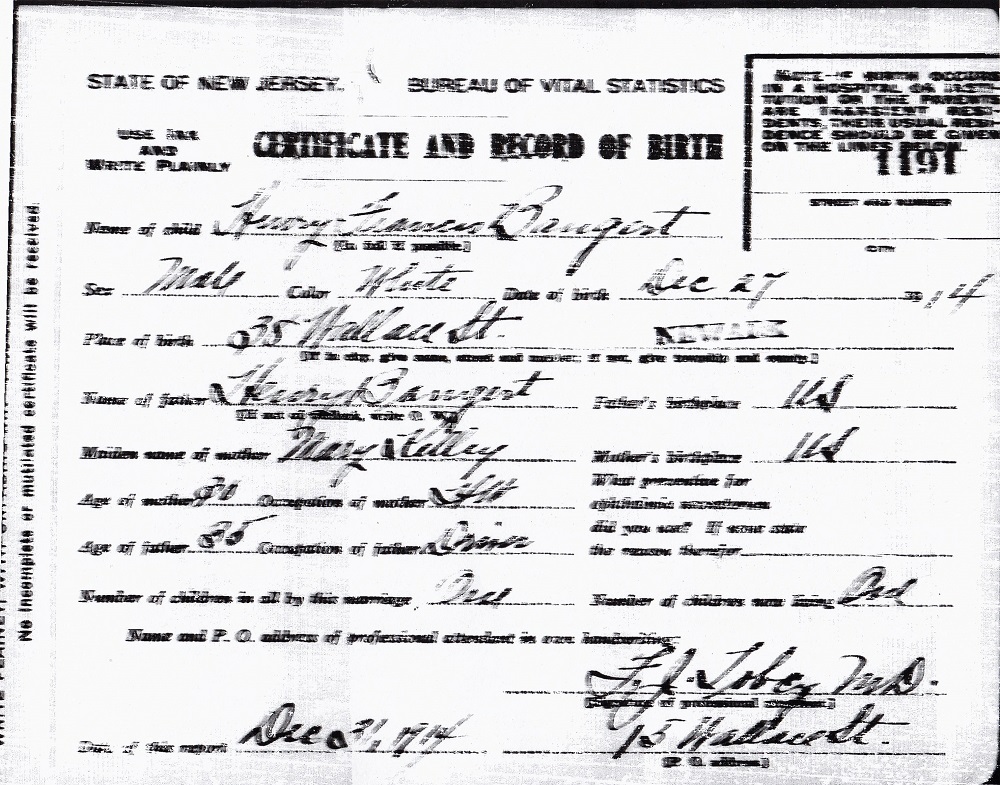 STATE OF NEW JERSEY. BUREAU OF VITAL STATISTICS
USE INK
AND
WRITE PLAINLY
CERTIFICATE AND RECORD OF BIRTH
NOTE—IF BIRTH OCCURS
IN A HOSPITAL OR INSTI-
TUTION OR THE PARENTS
ARE TRANSIENT RESI-
DENTS, THEIR USUAL RESI-
DENCE SHOULD BE GIVEN
ON THE LINES BELOW.
1191
STREET AND NUMBER
CITY
Name of child Henry Francis Bangert
[In full if possible]
Sex Male Color White Date of birth Dec 27 1914
Place of birth 35 Wallace St. NEWARK
[If in city, give name, street and number; if not, give township and county.]
Name of father Henry Bangert Father's birthplace US
Maiden name of mother Mary Kelley Mother's birthplace US
Age of mother 30 Occupation of mother HW
What preventive for
ophthalmia neonatorum
did you use? If none state
the reason therefor
Age of father 35 Occupation of father Driver
Number of children in all by this marriage One Number of children now living One
Name and P. O. address of professional attendant in own handwriting.
F. J. Tobey M.D.
[Signature of professional attendant]
Date of this report Dec 31, 1914 15 Wallace St.
[P. O. address]
No incomplete or mutilated certificate will be received.